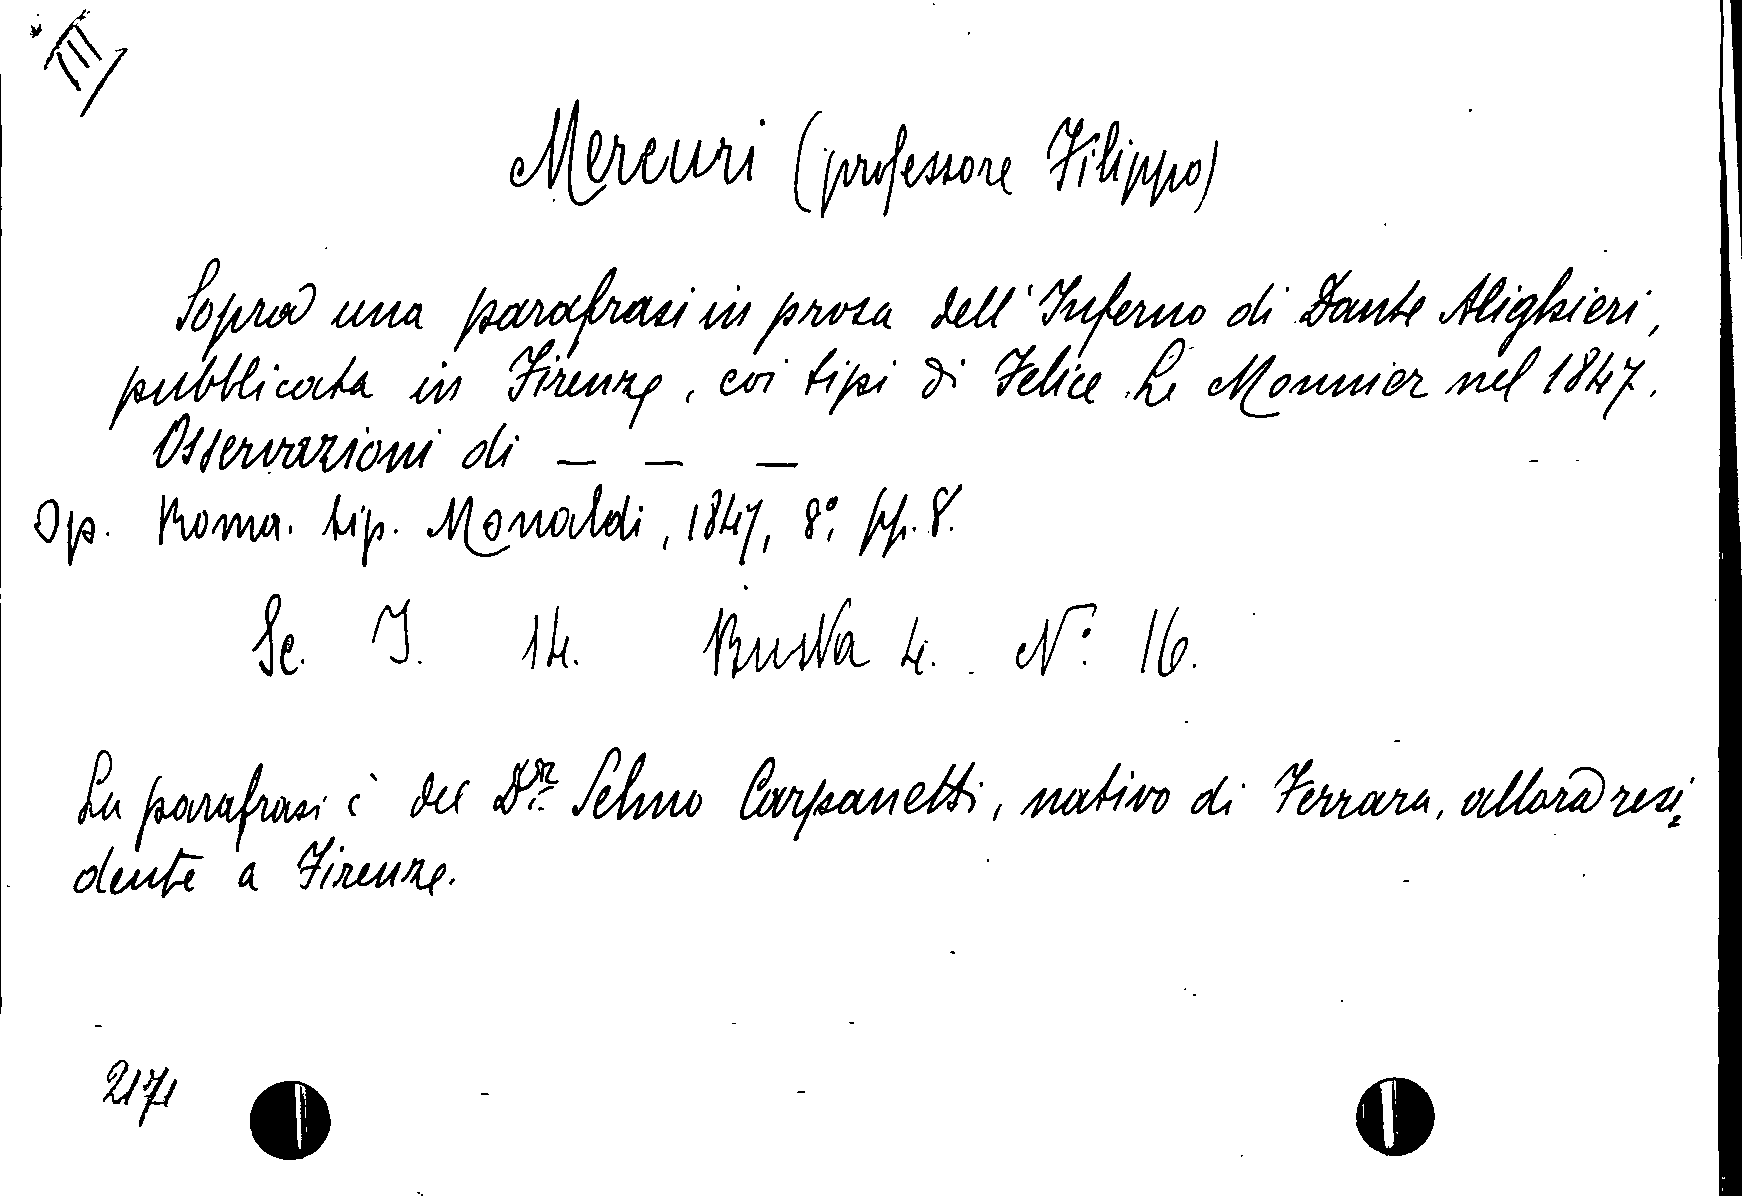 III
Mercuri (professore Filippo)
Sopra una parafrasi in prosa dell'Inferno di Dante Alighieri,
pubblicata in Firenze, coi tipi di Felice Le Monnier nel 1847.
Osservazioni di — — —
Op. Roma. tip. Monaldi, 1847, 8°, pp. 8.
Sc. I. 14. Busta 4. N° 16.
La parafrasi è del D.r Selmo Carpanetti, nativo di Ferrara, allora resi
dente a Firenze.